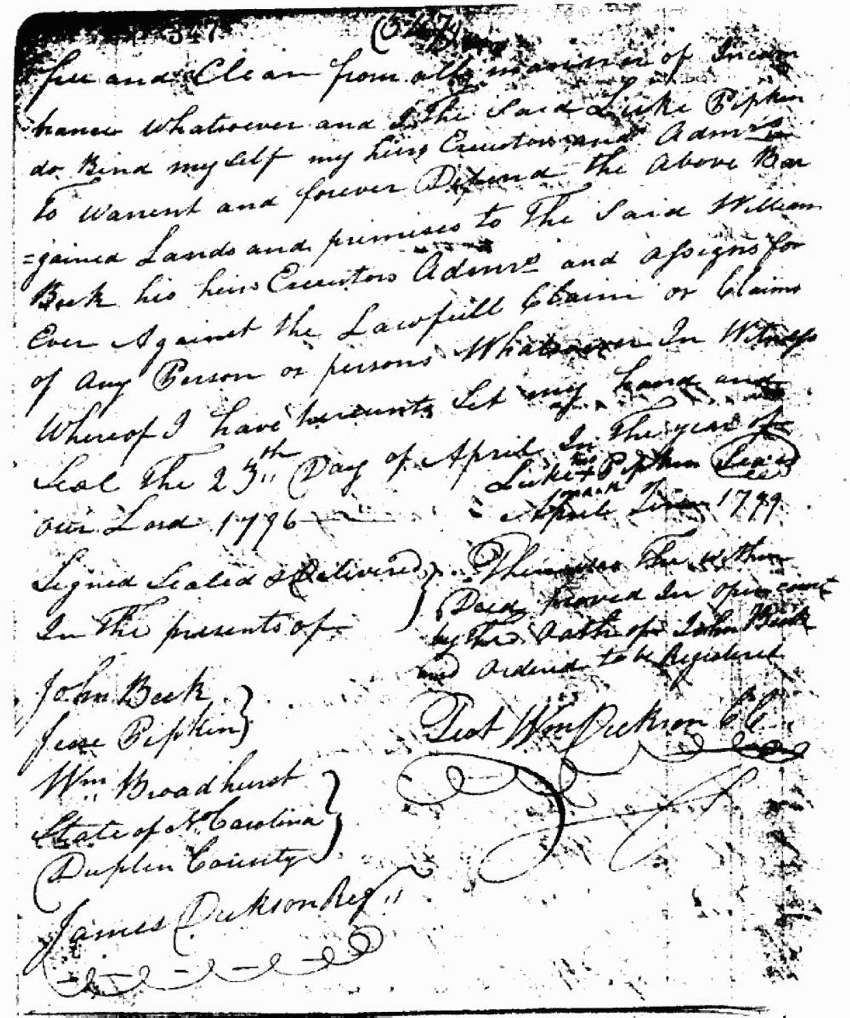 347 (347)
free and Clear from all manner of Incum
brance Whatsoever and I The Said Luke Pipkin
do Bind my Self my heirs Executors and Admrs
To Warrent and forever Defend the Above Bar
=gained Lands and premises to The Said William
Beek his heirs Executors Admrs and assigns for
Ever Against the Lawfull Claim or Claims
of Any Person or persons Whatsoever In Witness
Whereof I have hereunto Set my hand and
Seal The 23th Day of April In The year of
Our Lord 1796
his
Luke + Pipkin Seal
mark
April Term 1799
Signed Sealed & Delivered
In The presents of
John Beek
Jesse Pipkin
Wm Broadhurst
Then was The within
Deed proved In open court
by The Oath of John Beek
and Ordered to be Registered
Test Wm Dickson CC
State of No Carolina
Duplin County
James Dickson Reg